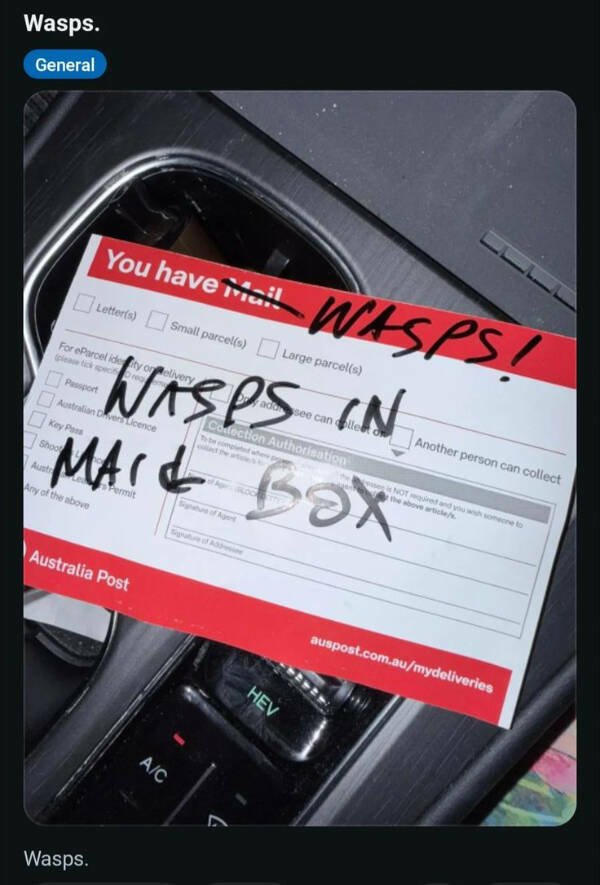 Wasps.
General
You have Mail WASPS!
Letter(s) Small parcel(s) Large parcel(s)
For eParcel identity on delivery
(please tick specific ID
Passport
Australian Drivers Licence
Key Pass
Permit
Any of the above
Only addressee can collect or
Another person can collect
WASPS IN
MAIL BOX
Collection Authorisation
To be completed where
is NOT required and you wish someone to
collect the article/s
the above article/s.
Signature of Agent
Signature of Addressee
Australia Post
auspost.com.au/mydeliveries
HEV
A/C
Wasps.